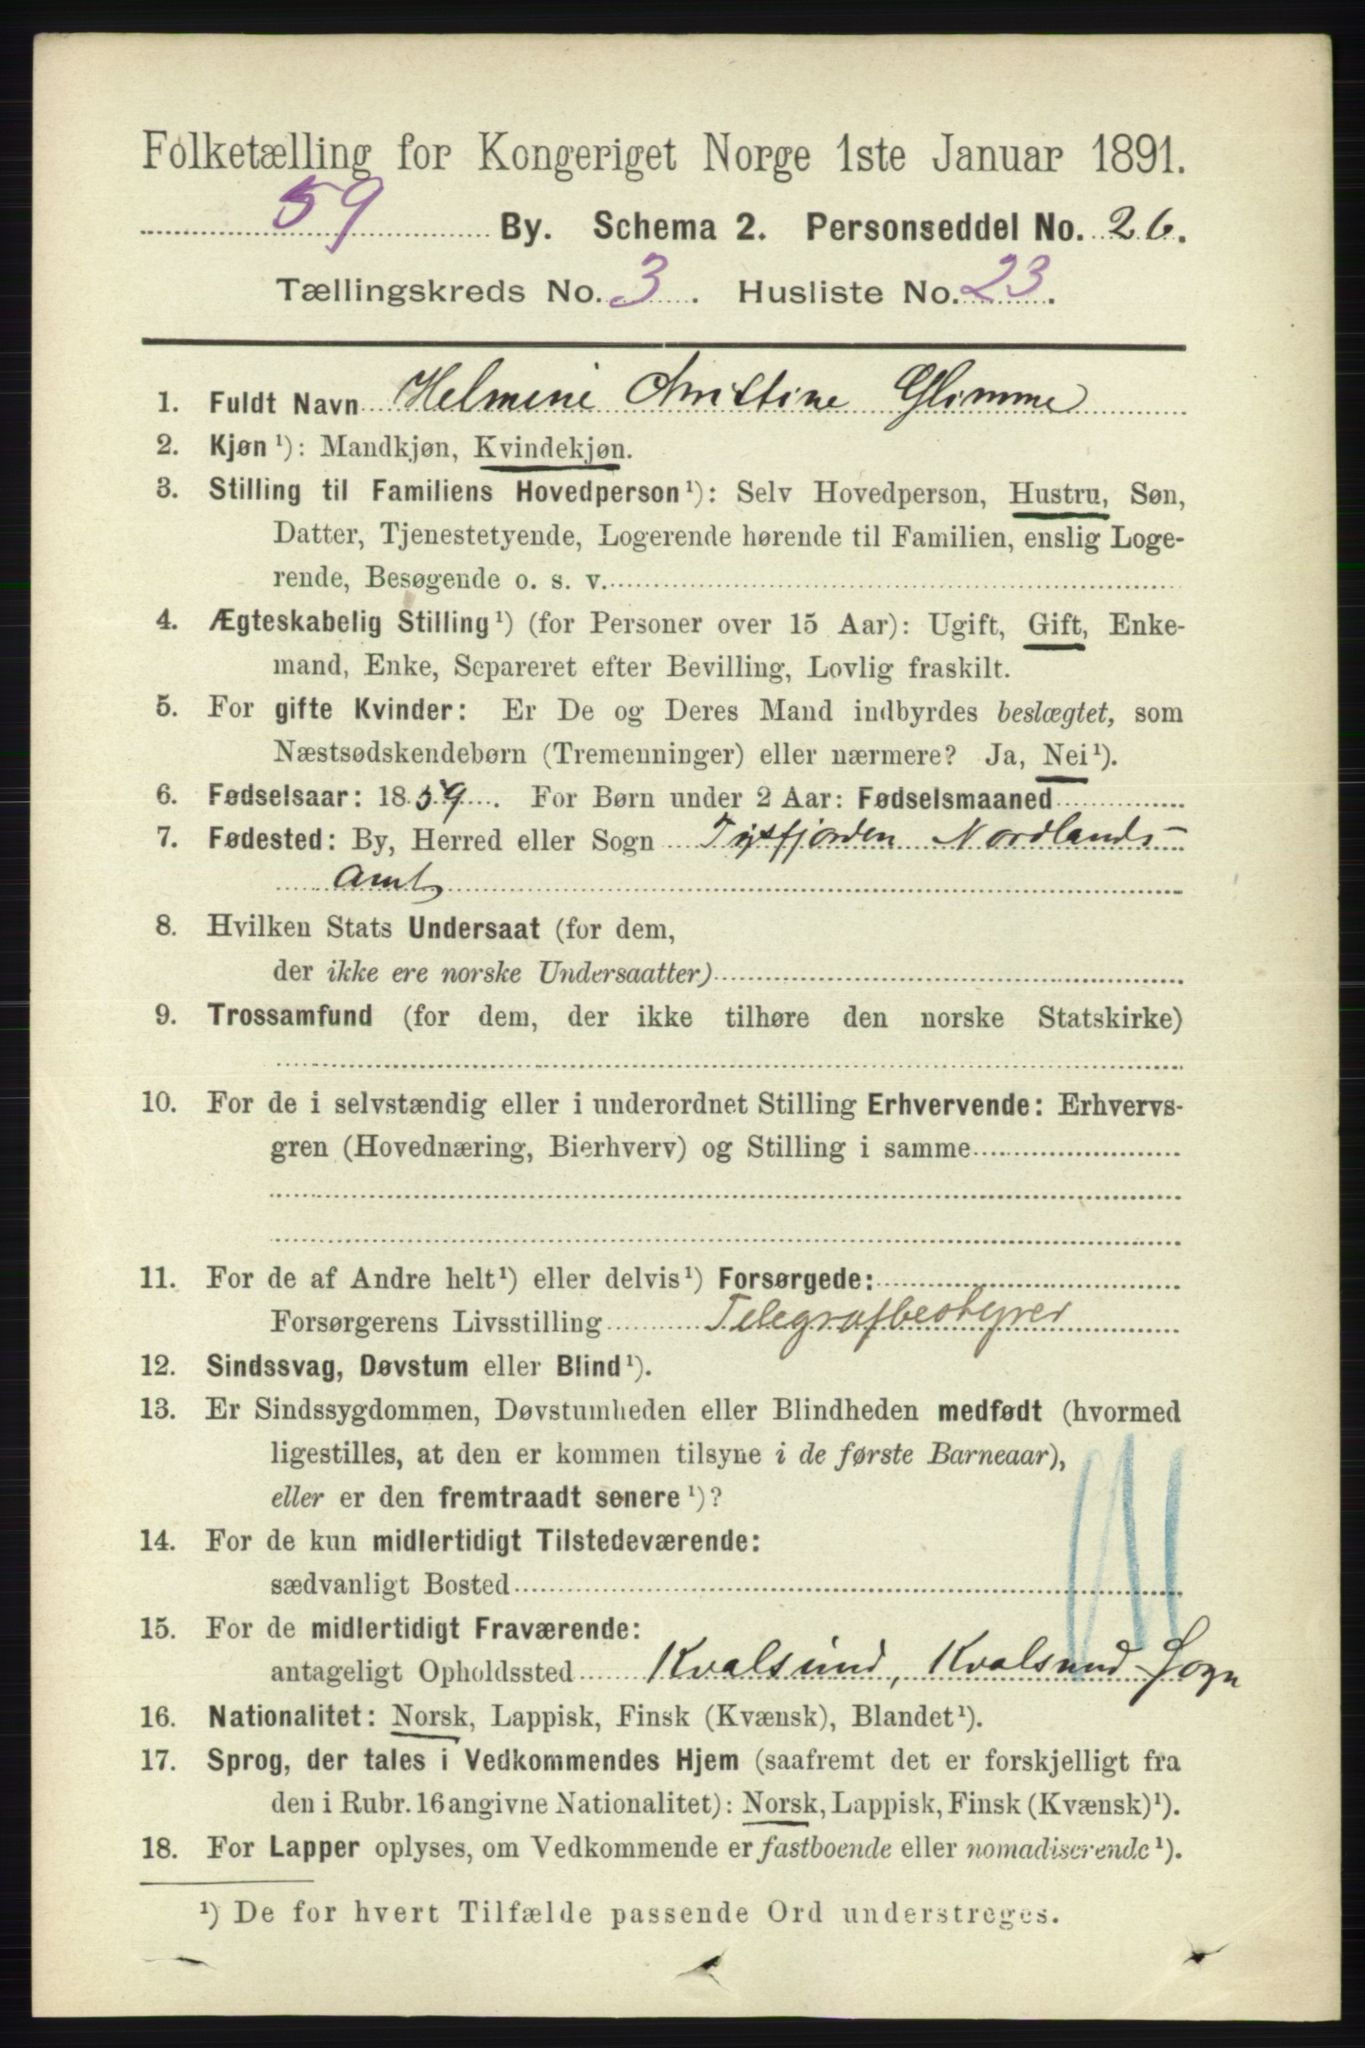 Folketælling for Kongeriget Norge 1ste Januar 1891.
59 By. Schema 2. Personseddel No. 26.
Tællingskreds No. 3. Husliste No. 23.
1. Fuldt Navn Helmine Christine Glimme
2. Kjøn¹): Mandkjøn, Kvindekjøn.
3. Stilling til Familiens Hovedperson¹): Selv Hovedperson, Hustru, Søn,
Datter, Tjenestetyende, Logerende hørende til Familien, enslig Loge-
rende, Besøgende o. s. v.
4. Ægteskabelig Stilling¹) (for Personer over 15 Aar): Ugift, Gift, Enke-
mand, Enke, Separeret efter Bevilling, Lovlig fraskilt.
5. For gifte Kvinder: Er De og Deres Mand indbyrdes beslægtet, som
Næstsødskendebørn (Tremenninger) eller nærmere? Ja, Nei¹).
6. Fødselsaar: 1859. For Børn under 2 Aar: Fødselsmaaned
7. Fødested: By, Herred eller Sogn Tysfjorden Nordlands-
Amt
8. Hvilken Stats Undersaat (for dem,
der ikke ere norske Undersaatter)
9. Trossamfund (for dem, der ikke tilhøre den norske Statskirke)
10. For de i selvstændig eller i underordnet Stilling Erhvervende: Erhvervs-
gren (Hovednæring, Bierhverv) og Stilling i samme
11. For de af Andre helt¹) eller delvis¹) Forsørgede:
Forsørgerens Livsstilling Telegrafbestyrer
12. Sindssvag, Døvstum eller Blind¹).
13. Er Sindssygdommen, Døvstumheden eller Blindheden medfødt (hvormed
ligestilles, at den er kommen tilsyne i de første Barneaar),
eller er den fremtraadt senere¹)?
14. For de kun midlertidigt Tilstedeværende:
sædvanligt Bosted
15. For de midlertidigt Fraværende:
antageligt Opholdssted Kvalsund, Kvalsund Sogn
16. Nationalitet: Norsk, Lappisk, Finsk (Kvænsk), Blandet¹).
17. Sprog, der tales i Vedkommendes Hjem (saafremt det er forskjelligt fra
den i Rubr. 16 angivne Nationalitet): Norsk, Lappisk, Finsk (Kvænsk)¹).
18. For Lapper oplyses, om Vedkommende er fastboende eller nomadiserende¹).
¹) De for hvert Tilfælde passende Ord understreges.